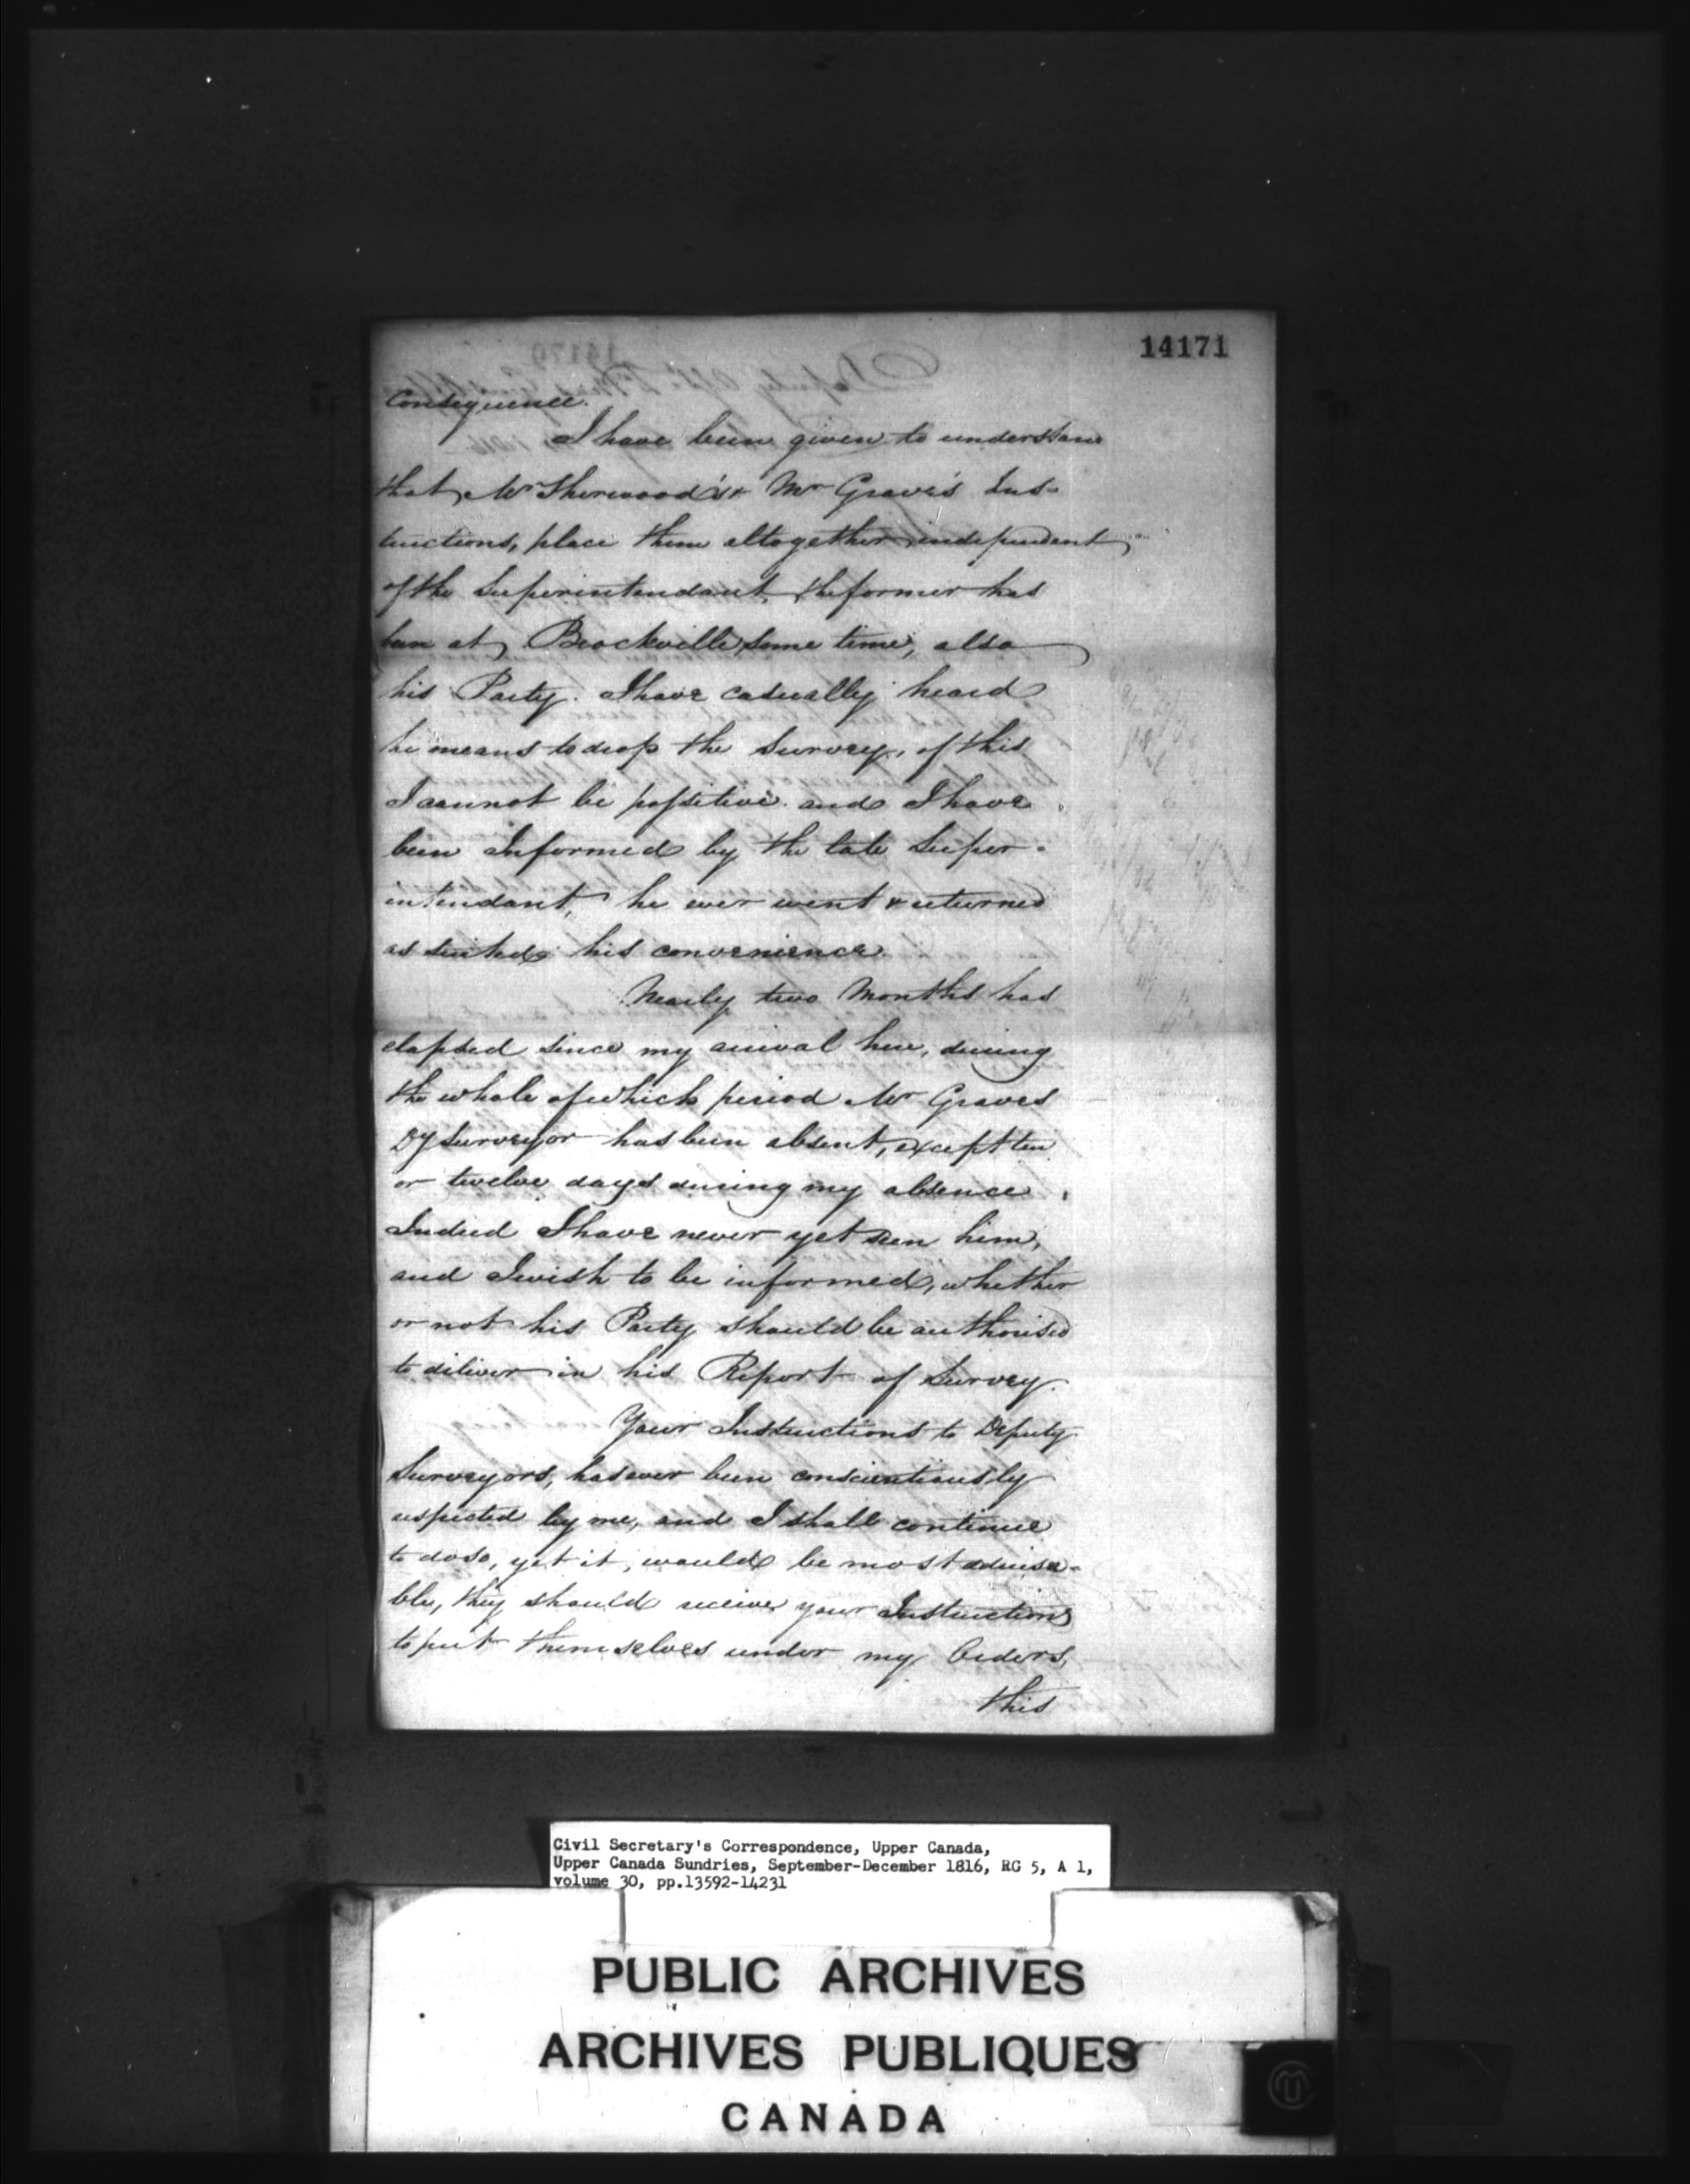 14171
Consequence.
I have been given to understand
that Mr Sherwood's & Mr Graves's Ins-
tructions, place them altogether independent
of the Superintendant, the former has
been at Brockville some time, also
his Party. I have casually heard
he means to drop the Survey, of this
I cannot be possitive. and I have
been Informed by the late Super-
intendant, he ever went & returned
as suited his convenience.
Nearly two Months has
elapsed since my arival here, during
the whole of which period Mr Graves
Dy Surveyor has been absent, except ten
or twelve days during my absence,
Indeed I have never yet seen him,
and I wish to be informed, whether
or not his Party should be authorised
to diliver in his Report of Survey.
Your Instructions to Deputy
Surveyors, has ever been conscientiously
respected by me, and I shall continue
to do so, yet it, would be most advisa-
ble, they should receive your Instructions
to put themselves under my Orders,
this
Civil Secretary's Correspondence, Upper Canada,
Upper Canada Sundries, September-December 1816, RG 5, A 1,
volume 30, pp.13592-14231
PUBLIC ARCHIVES
ARCHIVES PUBLIQUES
CANADA